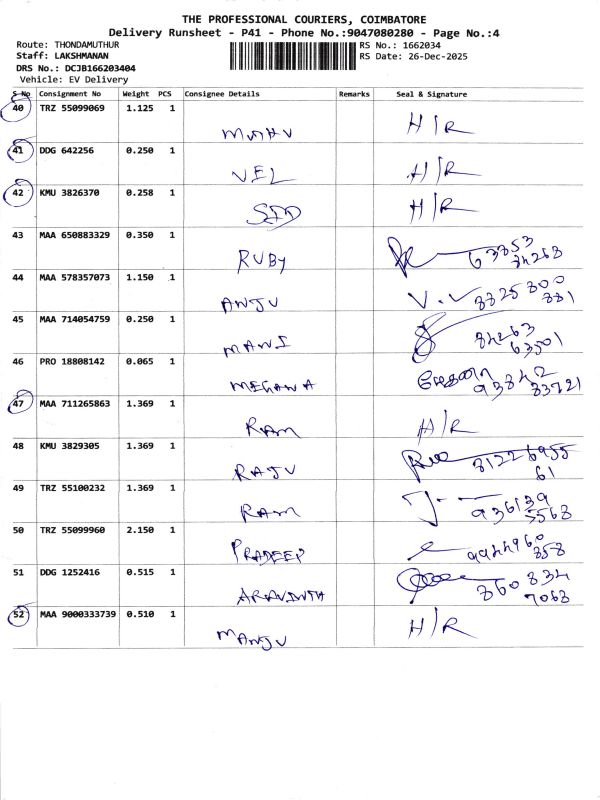 THE PROFESSIONAL COURIERS, COIMBATORE
Delivery Runsheet - P41 - Phone No.:9047080280 - Page No.:4
Route: THONDAMUTHUR RS No.: 1662034
Staff: LAKSHMANAN RS Date: 26-Dec-2025
DRS No.: DCJB166203404
Vehicle: EV Delivery
S No Consignment No Weight PCS Consignee Details Remarks Seal & Signature
40 TRZ 55099069 1.125 1
H/R
41 DDG 642256 0.250 1
VEL H/R
42 KMU 3826370 0.258 1
SID H/R
43 MAA 650883329 0.350 1
RUBY 63853
44 MAA 578357073 1.150 1
ANJU V.V 8825800
881
45 MAA 714054759 0.250 1
MANI 84263
63501
46 PRO 18808142 0.065 1
MEGANA மேகனா 93842
33721
47 MAA 711265863 1.369 1
RAM H/R
48 KMU 3829305 1.369 1
RAJU 81226955
61
49 TRZ 55100232 1.369 1
RAM 936139
5568
50 TRZ 55099960 2.150 1
PRADEEP 9944960
858
51 DDG 1252416 0.515 1
ARAVINTH 860834
7068
52 MAA 9000333739 0.510 1
MANJU H/R